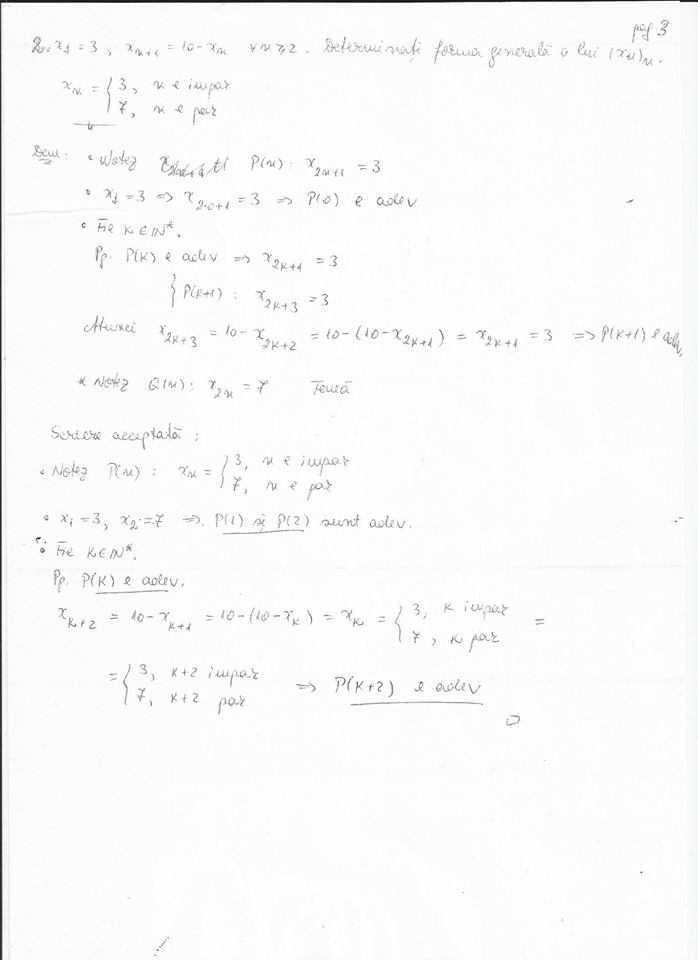 pag 3
2. x₁ = 3, xₙ₊₁ = 10 - xₙ ∀ n ≥ 2. Determinați forma generală a lui (xₙ)ₙ.
xₙ = { 3, n e impar
7, n e par
Dem: • Notez P(n): x₂ₙ₊₁ = 3
• x₁ = 3 => x₂.₀₊₁ = 3 => P(0) e adev
• Fie k ∈ ℕ*.
Pp. P(k) e adev => x₂ₖ₊₁ = 3
{ P(k+1): x₂ₖ₊₃ = 3
Atunci x₂ₖ₊₃ = 10 - x₂ₖ₊₂ = 10 - (10 - x₂ₖ₊₁) = x₂ₖ₊₁ = 3 => P(k+1) e adev.
* Notez Q(n): x₂ₙ = 7 Temă
Scriere acceptată:
• Notez P(n): xₙ = { 3, n e impar
7, n e par
• x₁ = 3, x₂ = 7 => P(1) și P(2) sunt adev.
• Fie k ∈ ℕ*.
Pp. P(k) e adev.
xₖ₊₂ = 10 - xₖ₊₁ = 10 - (10 - xₖ) = xₖ = { 3, k impar =
7, k par
= { 3, k+2 impar => P(k+2) e adev
7, k+2 par
□